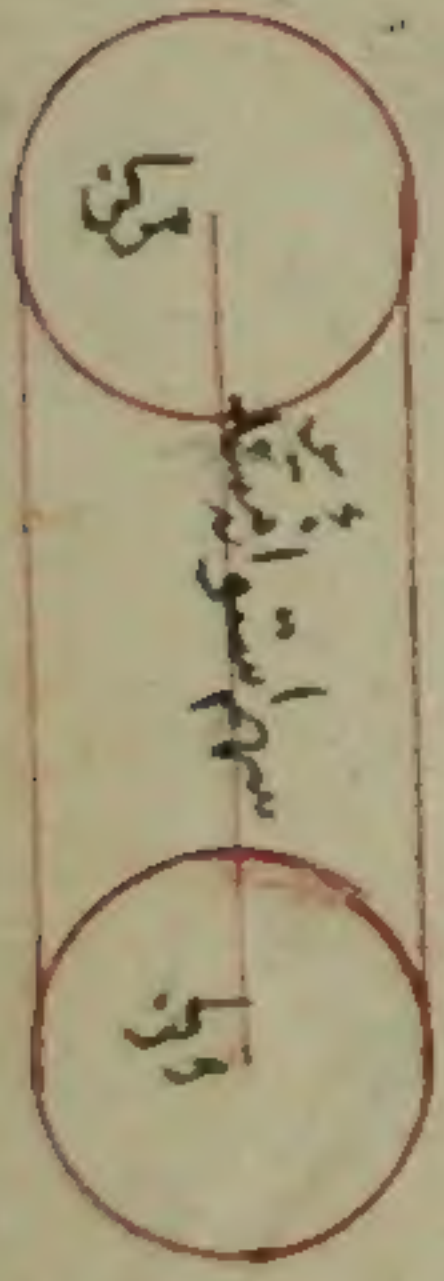 مركز
سهم استوانه
مركز